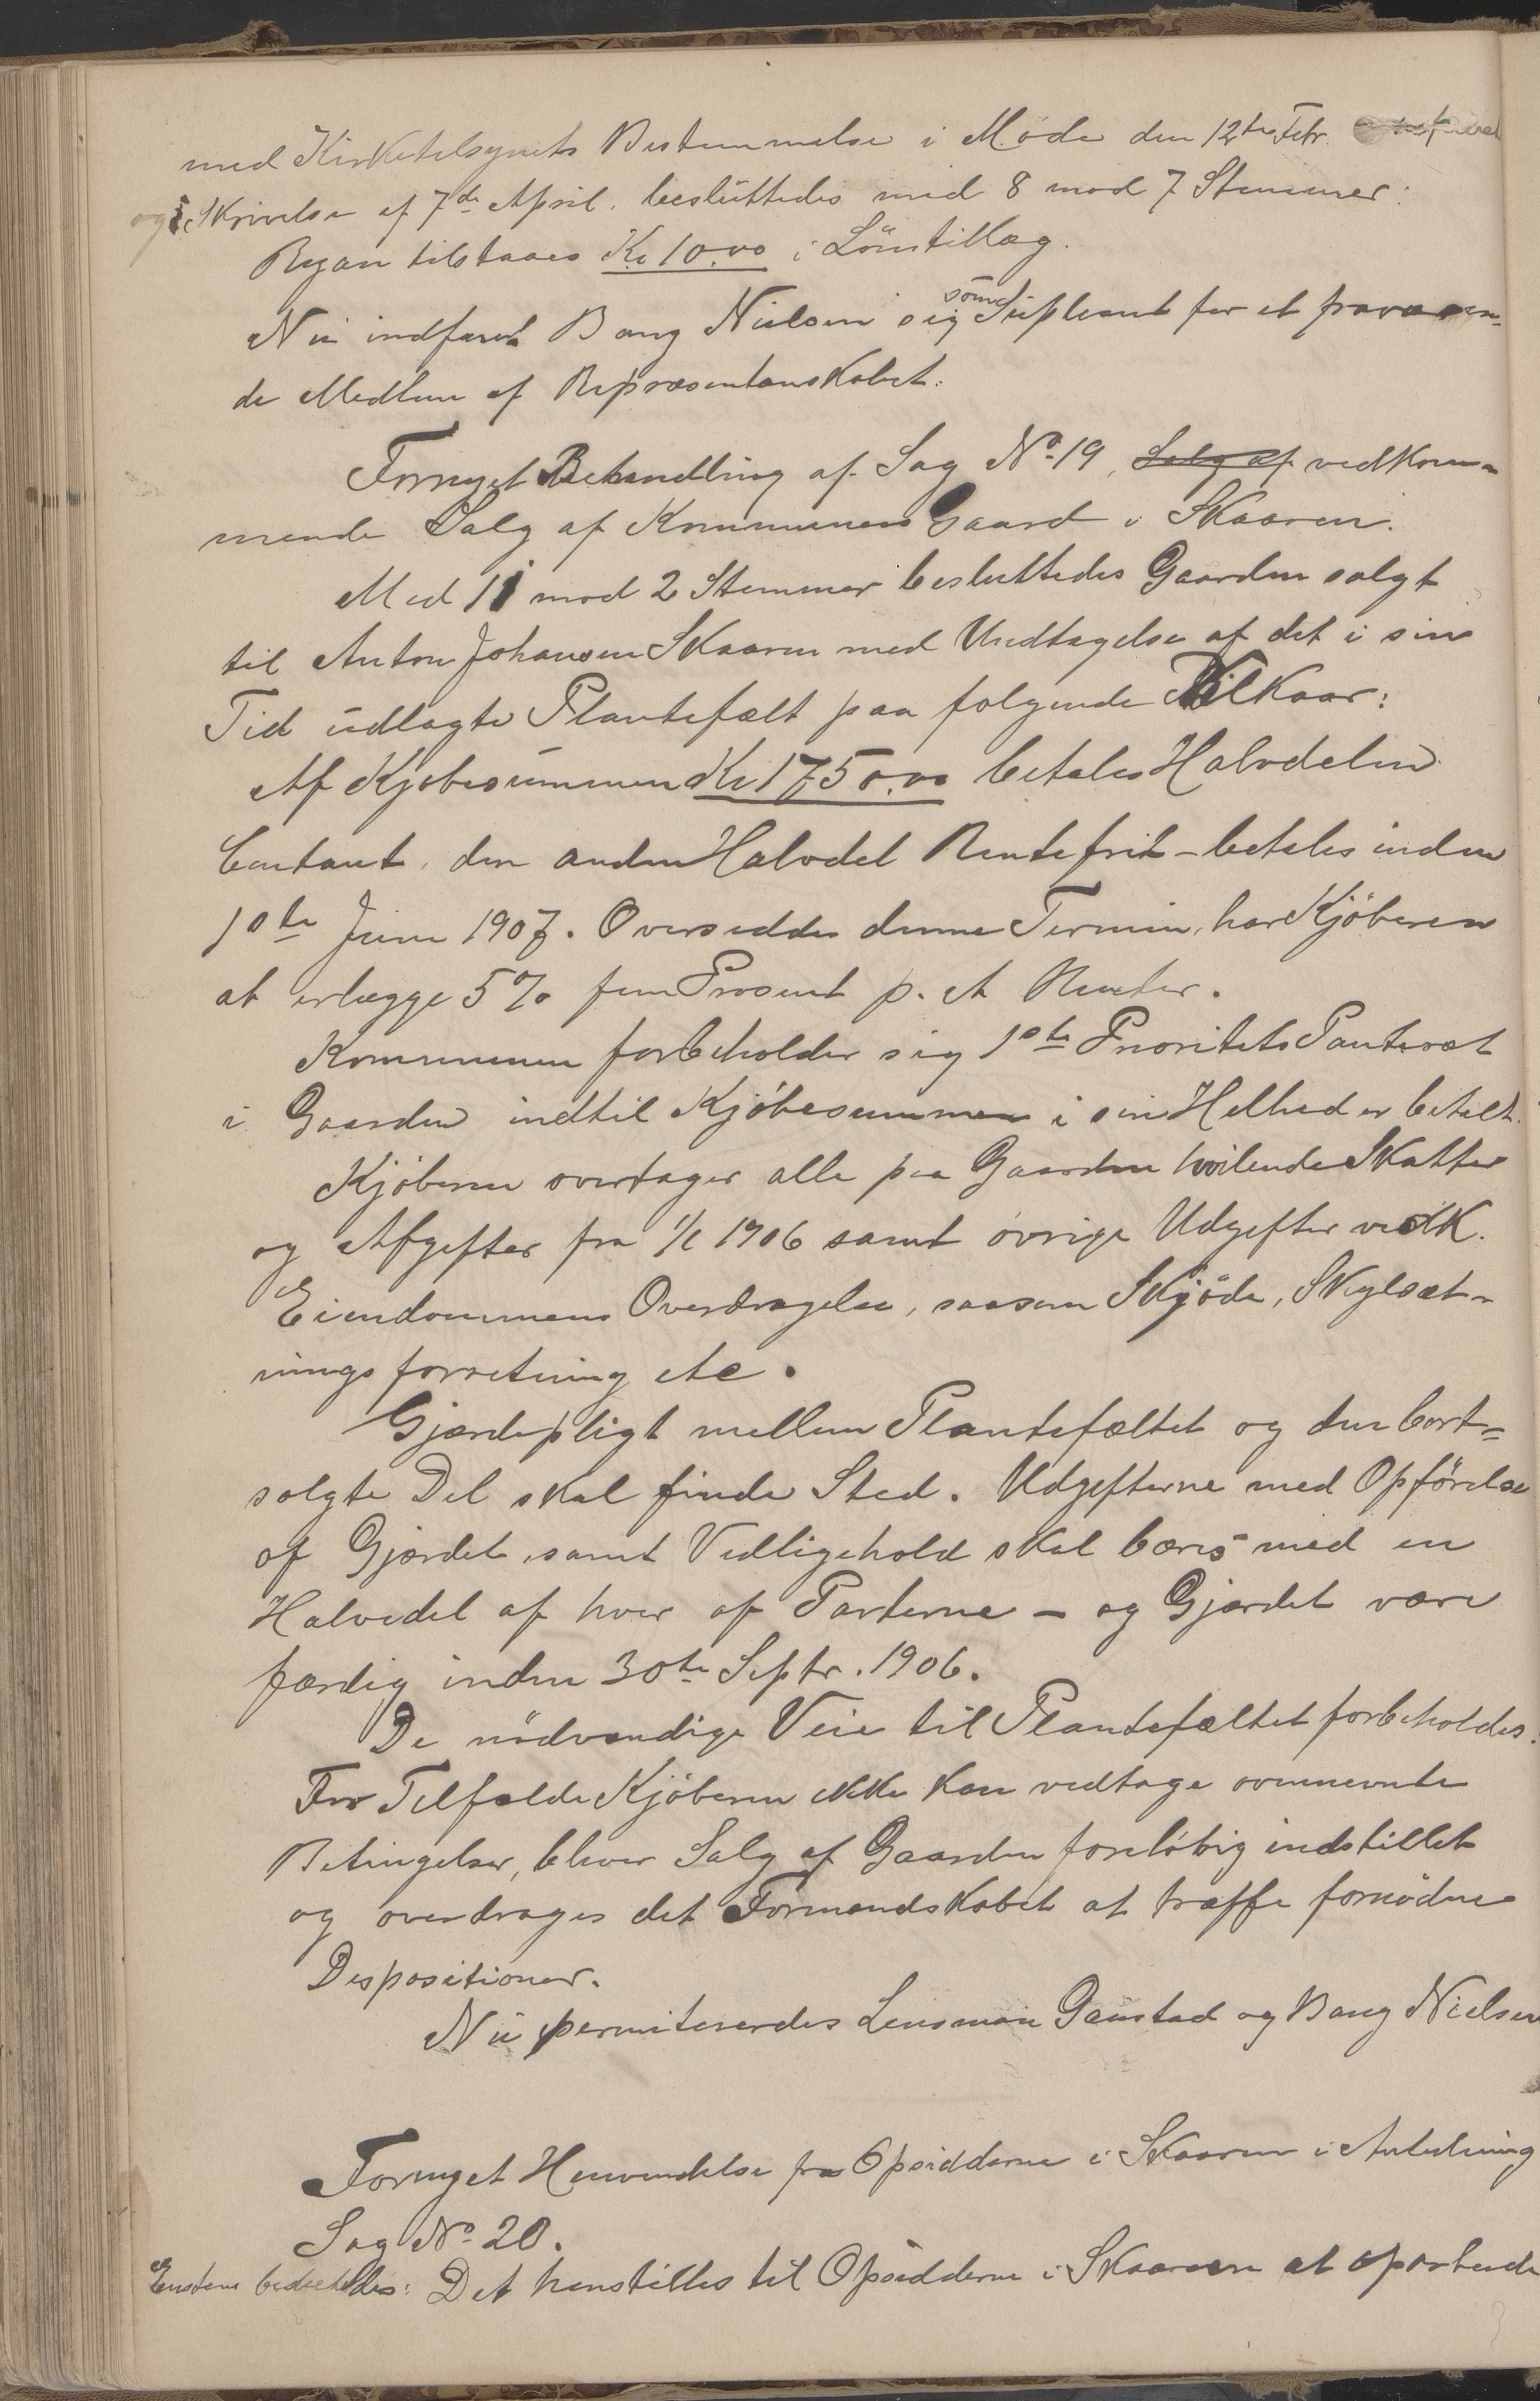 med Kirketilsynets Bestemmelse i Möde den 12te Febr.
og i Skrivelse af 7de April. besluttedes med 8 mod 7 Stemmer:
Ryan tilstaaes Kr 10.00 i Lönstillæg.
Nu indfandt Bang Nielsen sig som Supleant for et fraværen-
de Medlem af Repræsentanskabet.
Fornyet Behandling af Sag No 19, Salg af vedkom-
mende Salg af Kommunens Gaard i Skaaren.
Med 11 mod 2 Stemmer besluttedes Gaarden solgt
til Anton Johansen Skaaren med Undtagelse af det i sin
Tid udlagte Plantefælt paa følgende Vilkaar:
Af Kjøbesummen Kr 1750.00 betales Halvdelen
Contant, den anden Halvdel Rentefrit - betales inden
1ste Juni 1907. Oversiddes denne Termin, har Kjöberen
at erlægge 5% fem Prosent p. a Renter.
Kommunen forbeholder sig 1ste Prioritets Panteret
i Gaarden indtil Kjöbesummen i sin Helhed er betalt.
Kjöberen overtager alle paa Gaarden hvilende Skatter
og Afgifter fra 1/1 1906 samt övrige Udgifter vedk.
Eiendommens Overdragelse, saasom Skjöde, Skyldsæt-
ningsforretning etc.
Gjærdepligt mellem Plantefæltet og den bort-
solgte Del skal finde Sted. Udgifterne med Opförelse
af Gjærdet, samt Vedligehold skal bæres med en
Halvdel af hver af Parterne - og Gjærdet være
færdig inden 30te Septr. 1906.
De nödvendige Veie til Plantefæltet forbeholdes.
For Tilfælde Kjöberen ikke kan vedtage ovennevnte
Betingelser, bliver Salg af Gaarden foreløbig indstillet
og overdrages det Formandskabet at træffe fornödne
Dispositioner.
Nu permiteredes Lensman Gaustad og Bang Nielsen
Fornyet Henvendelse fra Opsidderne i Skaaren i Anledning
Sag No 20.
Enstem. besluttedes: Det henstilles til Opsidderne i Skaaren at oparbeide